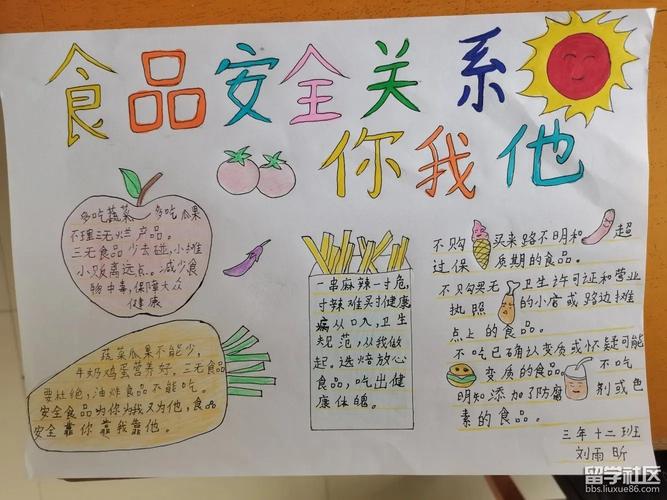 食品安全关系
你我他
多吃蔬菜 多吃瓜果
不理三无烂产品。
三无食品少去碰,小摊
小贩离远点。减少食
物中毒,保障大众
健康
蔬菜瓜果不能少,
牛奶鸡蛋营养好。三无食品
要杜绝,油炸食品不能吃。
安全食品为你为我又为他,食品
安全靠你靠我靠他。
一串麻辣一寸危,
寸辣难买寸健康
病从口入,卫生
规范,从我做
起。选烙放心
食品,吃出健
康体魄。
不购买来路不明和超
过保质期的食品。
不只购买无卫生许可证和营业
执照的小店或路边摊
点上的食品。
不吃已确认变质或怀疑可能
变质的食品 不吃
明知添加了防腐剂或色
素的食品。
三年十二班
刘雨昕
留学社区
bbs.liuxue86.com